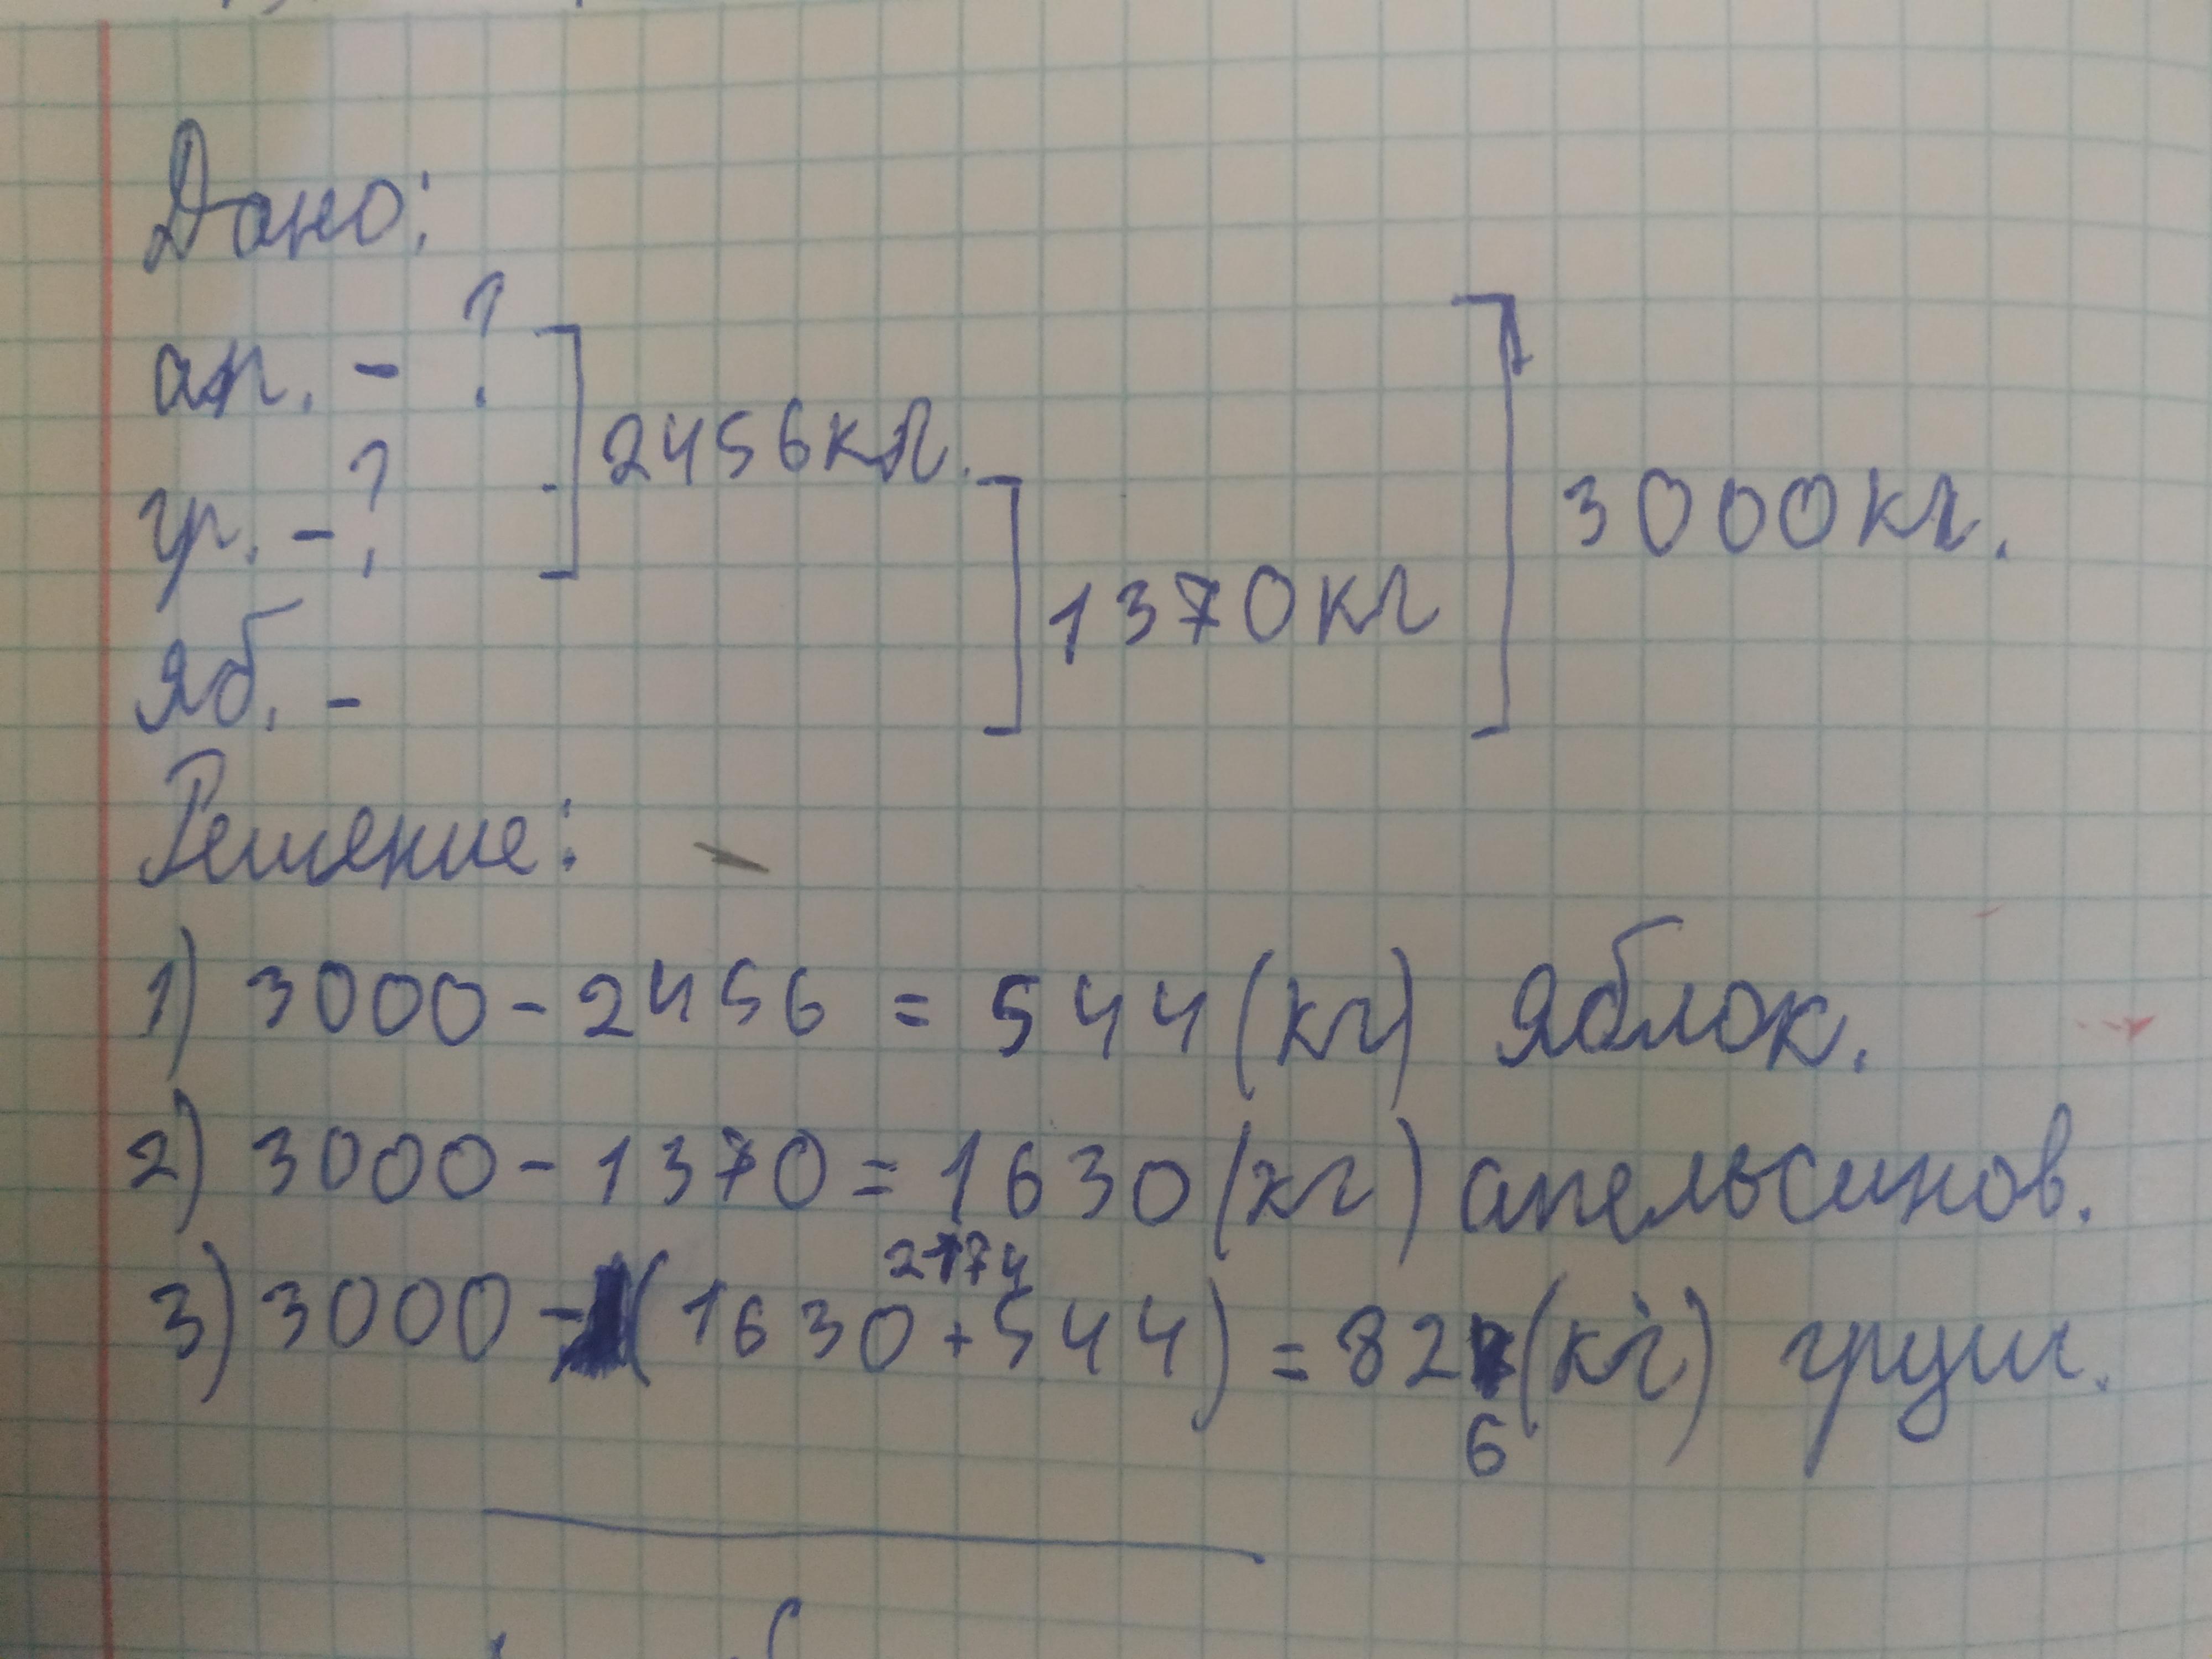 Дано:
ап. - ?
2456кг.
гр. - ?
3000кг.
1370кг
яб. -
Решение:
1) 3000 - 2456 = 544 (кг) яблок.
2) 3000 - 1370 = 1630 (кг) апельсинов.
2174
3) 3000 - (1630 + 544) = 82 (кг) груш.
6